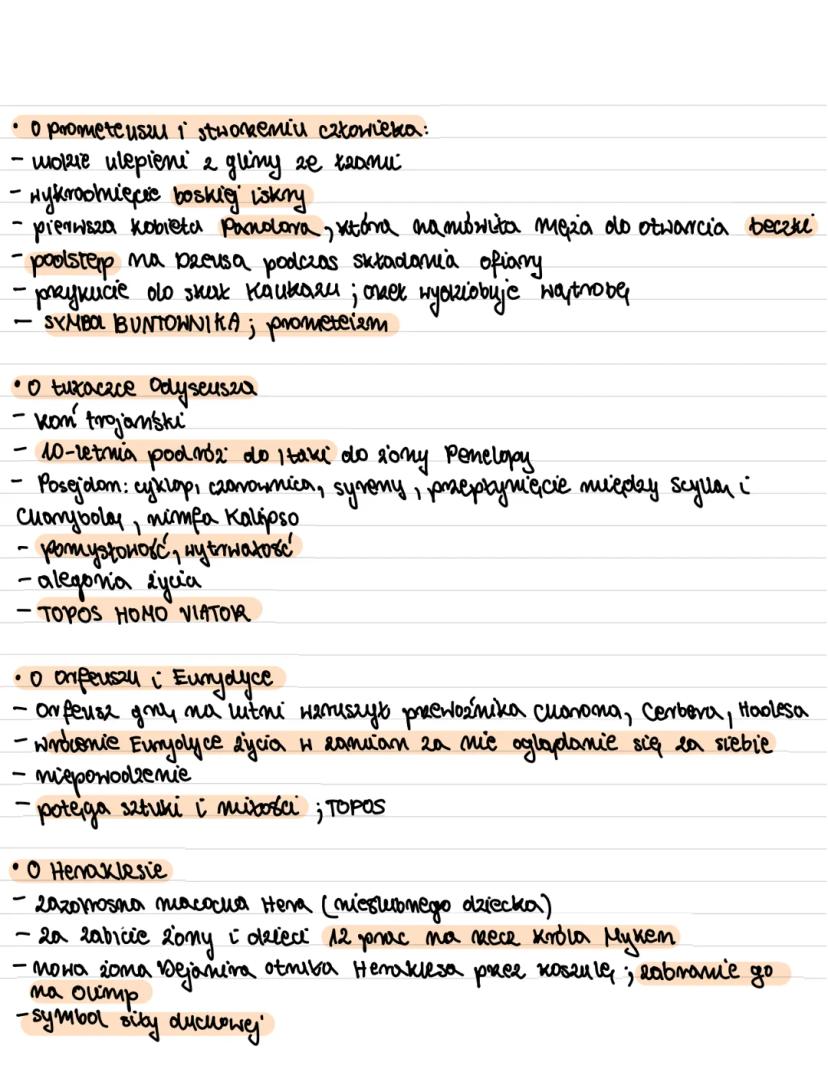 • O prometeuszu i stworzeniu człowieka:
- ludzie ulepieni z gliny ze łzami
- wykradnięcie boskiej iskry
- pierwsza kobieta Pandora, która namówiła męża do otwarcia beczki
- podstęp na Dzeusa podczas składania ofiary
- przykucie do skał Kaukazu; orzeł wydziobuje wątrobę
- SYMBOL BUNTOWNIKA; prometeizm
• O tułaczce Odyseusza
- koń trojański
- 10-letnia podróż do Itaki do żony Penelopy
- Posejdon: cyklop, czarownica, syreny, przepłynięcie między Scyllą i
Charybdą, nimfa Kalipso
- pomysłowość, wytrwałość
- alegoria życia
- TOPOS HOMO VIATOR
• O Orfeuszu i Eurydyce
- Orfeusz grą na lutni wzruszył przewoźnika Charona, Cerbera, Hadesa
- wrócenie Eurydyce życia w zamian za nie oglądanie się za siebie
- niepowodzenie
- potęga sztuki i miłości; TOPOS
• O Heraklesie
- zazdrosna macocha Hera (nieślubnego dziecka)
- za zabicie żony i dzieci 12 prac na rzecz króla Myken
- nowa żona Dejanira otruła Heraklesa przez koszulę; zabranie go
na Olimp
- symbol siły duchowej